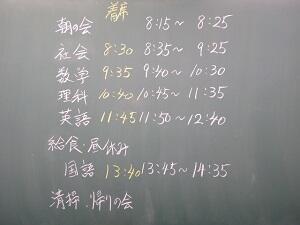 着席
朝の会 8:15~ 8:25
社会 8:30 8:35~ 9:25
数学 9:35 9:40~ 10:30
理科 10:40 10:45~ 11:35
英語 11:45 11:50~ 12:40
給食・昼休み
国語 13:40 13:45~ 14:35
清掃、帰りの会